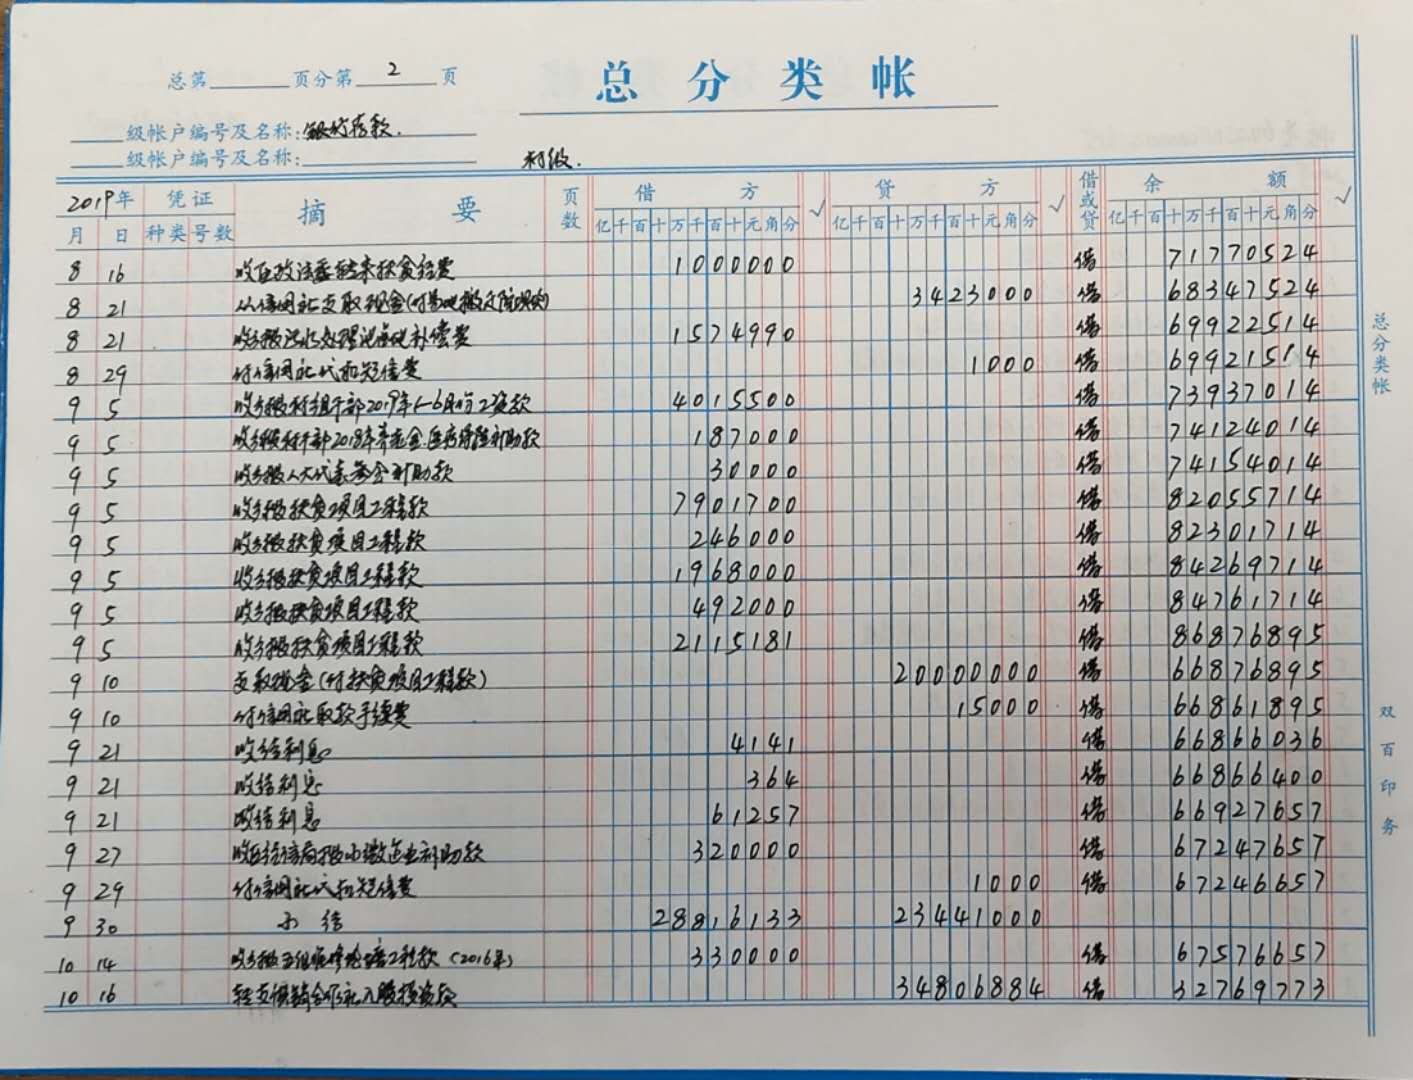 总分类帐
总第 页分第 2 页
级帐户编号及名称:银行存款.
级帐户编号及名称:
村级.
2019年 凭证 摘要 页数 借方 √ 贷方 √ 借或贷 余额 √
月 日 种类 号数 亿千百十万千百十元角分 亿千百十万千百十元角分 亿千百十万千百十元角分
8 16 收区政法委转来扶贫经费 1000000 借 71770524
8 21 从信用社支取现金 3423000 借 68347524
8 21 收乡拨污水处理设施 补偿费 1574990 借 69922514
8 29 付信用社代扣短信费 1000 借 69921514
9 5 收乡拨村组干部2019年1-6月份工资款 4015500 借 73937014
9 5 收乡拨村干部2018年养老金.医疗保险补助款 187000 借 74124014
9 5 收乡拨人大代表 补助款 30000 借 74154014
9 5 收乡拨扶贫项目工程款 7901700 借 82055714
9 5 收乡拨扶贫项目工程款 246000 借 82301714
9 5 收乡拨扶贫项目工程款 1968000 借 84269714
9 5 收乡拨扶贫项目工程款 492000 借 84761714
9 5 收乡拨扶贫项目工程款 2115181 借 86876895
9 10 支取现金(付扶贫项目工程款) 20000000 借 66876895
9 10 付信用社取款手续费 15000 借 66861895
9 21 收结利息 4141 借 66866036
9 21 收结利息 364 借 66866400
9 21 收结利息 61257 借 66927657
9 27 收区经信局拨 补助款 320000 借 67247657
9 29 付信用社代扣短信费 1000 借 67246657
9 30 小结 28816133 23441000
10 14 收乡拨五组维修 工程款(2016年) 330000 借 67576657
10 16 转支 入股投资款 34806884 借 32769773
总分类帐
双百印务